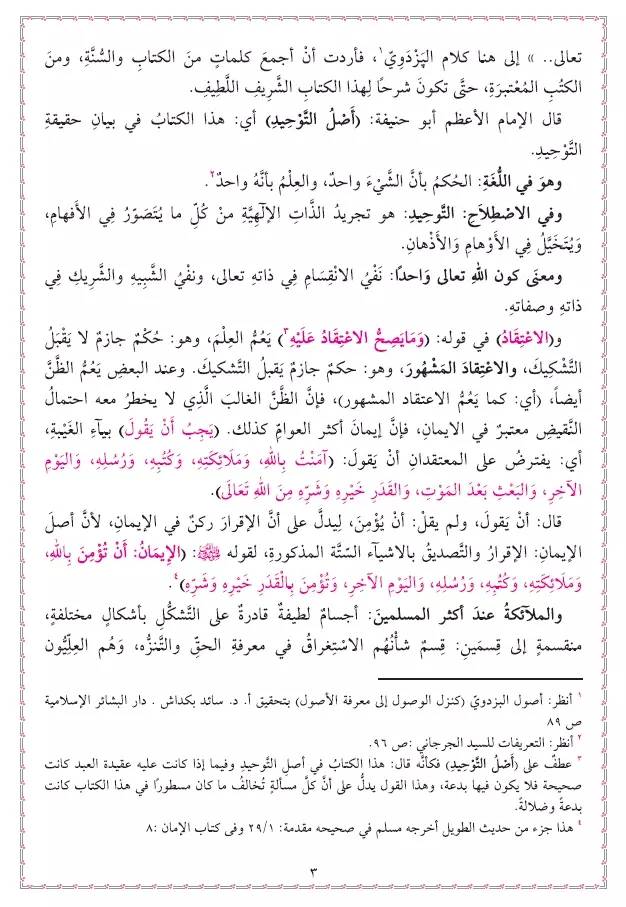 تعالى.. » إلى هنا كلام البَزْدَوِيّ١، فأردت أنْ أجمعَ كلماتٍ منَ الكتابِ والسُّنَّةِ، ومنَ
الكتُبِ المُعْتبرَةِ، حتَّى تكونَ شرحًا لِهذا الكتابِ الشَّرِيفِ اللَّطِيفِ.
قال الإمام الأعظم أبو حنيفة: (أَصْلُ التَّوْحِيدِ) أي: هذا الكتابُ في بيانِ حقيقةِ
التَّوْحِيدِ.
وهوَ في اللُّغَةِ: الحُكمُ بأنَّ الشَّيْءَ واحدٌ، والعِلْمُ بأنَّهُ واحدٌ٢.
وفي الاصْطِلاَحِ: التَّوحِيدِ: هو تجريدُ الذَّاتِ الإلٰهِيَّةِ منْ كُلِّ ما يُتَصَوّرُ فِي الأفهامِ،
وَيُتَخَيَّلُ فِي الأوْهامِ وَالأذْهانِ.
ومعنَى كون اللهِ تعالى وَاحدًا: نَفْيُ الانْقِسَامِ فِي ذاتِهِ تعالى، ونفْيُ الشَّبِيهِ والشَّرِيكِ فِي
ذاتِهِ وصفاتهِ.
و(الاعْتِقَادُ) في قوله: (وَمَايَصِحُّ الاعْتِقَادُ عَلَيْهِ٣) يَعُمُّ العِلْمَ، وهو: حُكْمٌ جازمٌ لا يَقْبَلُ
التَّشْكِيكَ، والاعْتِقادَ المَشْهُورَ، وهو: حكمٌ جازمٌ يَقبلُ التَّشكيكَ. وعند البعضِ يَعُمُّ الظَّنَّ
أيضاً، (أي: كما يَعُمُّ الاعتقاد المشهور)، فإنَّ الظَّنَّ الغالبَ الَّذِي لا يخطرُ معه احتمالُ
النَّقيضِ معتبرٌ في الايمانِ، فإنَّ إيمانَ أكثر العوامِّ كذلك. (يَجِبُ أَنْ يَقُولَ) بياءِ الغَيْبَةِ،
أي: يفترضُ على المعتقدانِ أنْ يَقولَ: (آمَنْتُ بِاللهِ، وَمَلَائِكَتِهِ، وَكُتُبِهِ، وَرُسُلِهِ، وَاليَوْمِ
الآخِرِ، وَالبَعْثِ بَعْدَ المَوْتِ، وَالقَدَرِ خَيْرِهِ وَشَرِّهِ مِنَ اللهِ تَعَالَى).
قال: أنْ يَقولَ، ولم يقلْ: أنْ يُؤْمِنَ، لِيدلَّ على أنَّ الإقرارَ ركنٌ في الإيمانِ، لأنَّ أصلَ
الإيمانِ: الإقرارُ والتَّصديقُ بالاشيآءِ السِّتَّة المذكورةِ، لقوله ﷺ: (الإِيمَانُ: أَنْ تُؤْمِنَ بِاللهِ،
وَمَلَائِكَتِهِ، وَكُتُبِهِ، وَرُسُلِهِ، وَاليَوْمِ الآخِرِ، وَتُؤْمِنَ بِالْقَدَرِ خَيْرِهِ وَشَرِّهِ)٤.
والملآئكةُ عندَ أكثر المسلمينَ: أجسامٌ لطيفةٌ قادرةٌ على التَّشكُّلِ بأشكالٍ مختلفةٍ،
منقسمةٍ إلى قِسمَينِ: قِسمٌ شأْنُهُم الاسْتِغراقُ في معرفةِ الحقِّ والتَّنزُّه، وَهُم العِلِّيُّون
١ أنظر: أصول البزدويّ (كنزل الوصول إلى معرفة الأصول) بتحقيق أ. د. سائد بكداش . دار البشائر الإسلامية
ص ٨٩
٢ أنظر: التعريفات للسيد الجرجاني :ص ٩٦.
٣ عطفٌ على (أَصْلُ التَّوْحِيدِ) فكأنَّه قال: هذا الكتابُ في أصلِ التَّوحيدِ وفيما إذا كانت عليه عقيدة العبد كانت
صحيحة فلا يكون فيها بدعة، وهذا القول يدلُّ على أنَّ كلَّ مسألةٍ تُخالفُ ما كان مسطورًا في هذا الكتاب كانت
بدعةً وضلالةً.
٤ هذا جزء من حديث الطويل أخرجه مسلم في صحيحه مقدمة: ٢٩/١ وفى كتاب الإمان :٨
٣